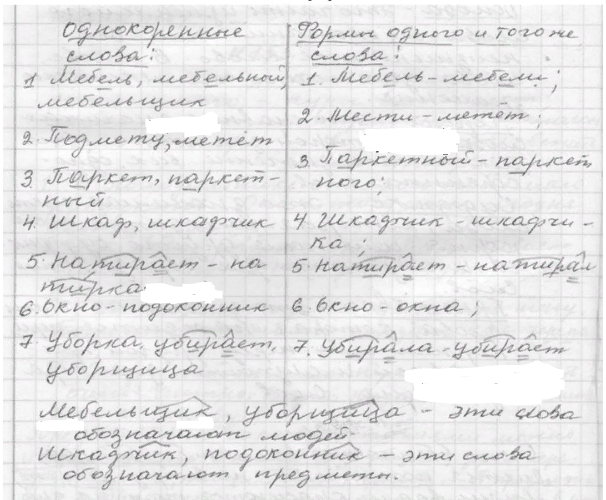 Однокоренные
слова:
1. Мебель, мебельный,
мебельщик
2. Подмету, метёт
3. Паркет, паркет-
ный
4. Шкаф, шкафчик
5. Натирает - на
тирка
6. Окно - подоконник
7. Уборка, убирает,
уборщица
Формы одного и того же
слова:
1. Мебель - мебели;
2. Мести - метёт;
3. Паркетный - паркет
ного;
4. Шкафчик - шкафчи-
ка;
5. Натирает - натирал
6. Окно - окна;
7. Убирала - убирает
Мебельщик, уборщица - эти слова
обозначают людей.
Шкафчик, подоконник - эти слова
обозначают предметы.